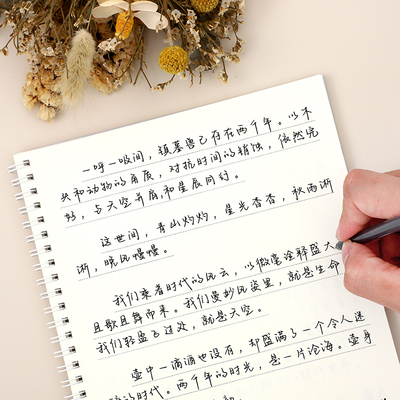 一呼一吸间，镇墓兽已存在两千年。以不
与天空并肩，和星辰同行。
这世间，青山灼灼，星光杳杳，秋雨淅
淅，晚风慢慢。
我们乘着时代的风云，以微毫诠释盛大
且歌且舞而来。我们曼妙风姿里，就是生命
我们轻盈飞过处，就是天空。
壶中一滴酒也没有，却盛满了一个令人迷
的时代。两千年的时光，是一片沧海。壶身